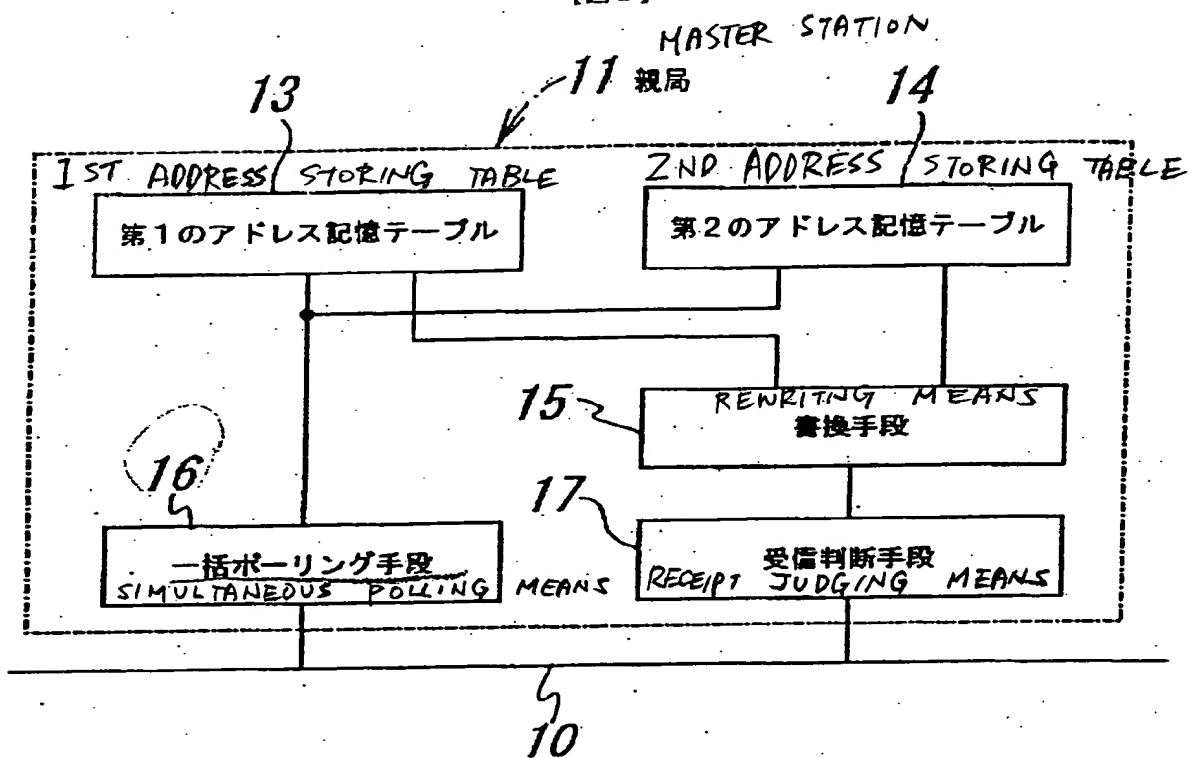 MASTER STATION
11 親局
13
14
1ST ADDRESS STORING TABLE
2ND ADDRESS STORING TABLE
第1のアドレス記憶テーブル
第2のアドレス記憶テーブル
15
RENRITNG MEANS
書換手段
16
17
一括ポーリング手段
SIMULTANEOUS POLLING MEANS
受信判断手段
RECEIPT JUDGING MEANS
10